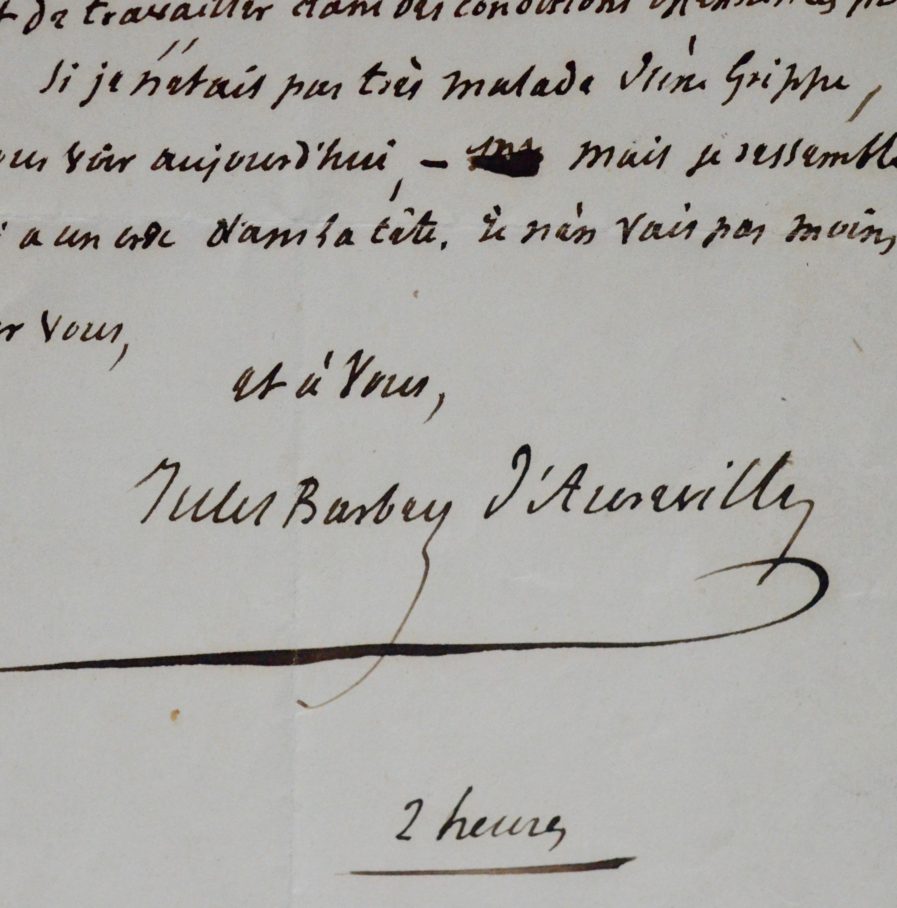 de travailler dans des conditions
Si je n'étais pas très malade d'une Grippe,
voir aujourd'hui, – mais je ressemble
a un dans la tête. Je n'en vais pas moins
Vous,
et à Vous,
Jules Barbey d'Aurevilly
2 heures